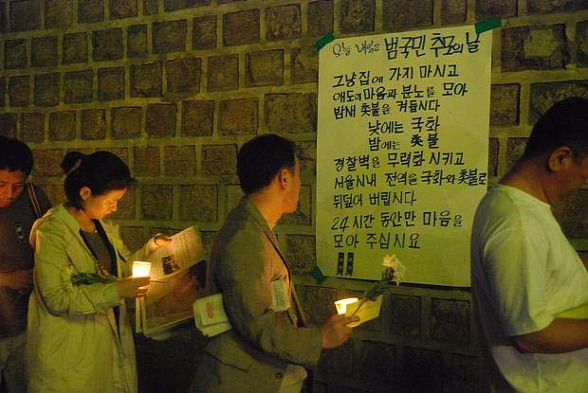 오늘 내일은 범국민 추모의 날
그냥 집에 가지 마시고
애도의 마음과 분노를 모아
밤새 촛불을 켜듭시다
낮에는 국화
밤에는 촛불
경찰벽을 무력화 시키고
서울시내 전역을 국화와 촛불로
뒤덮어 버립시다
24시간 동안만 마음을
모아 주십시요